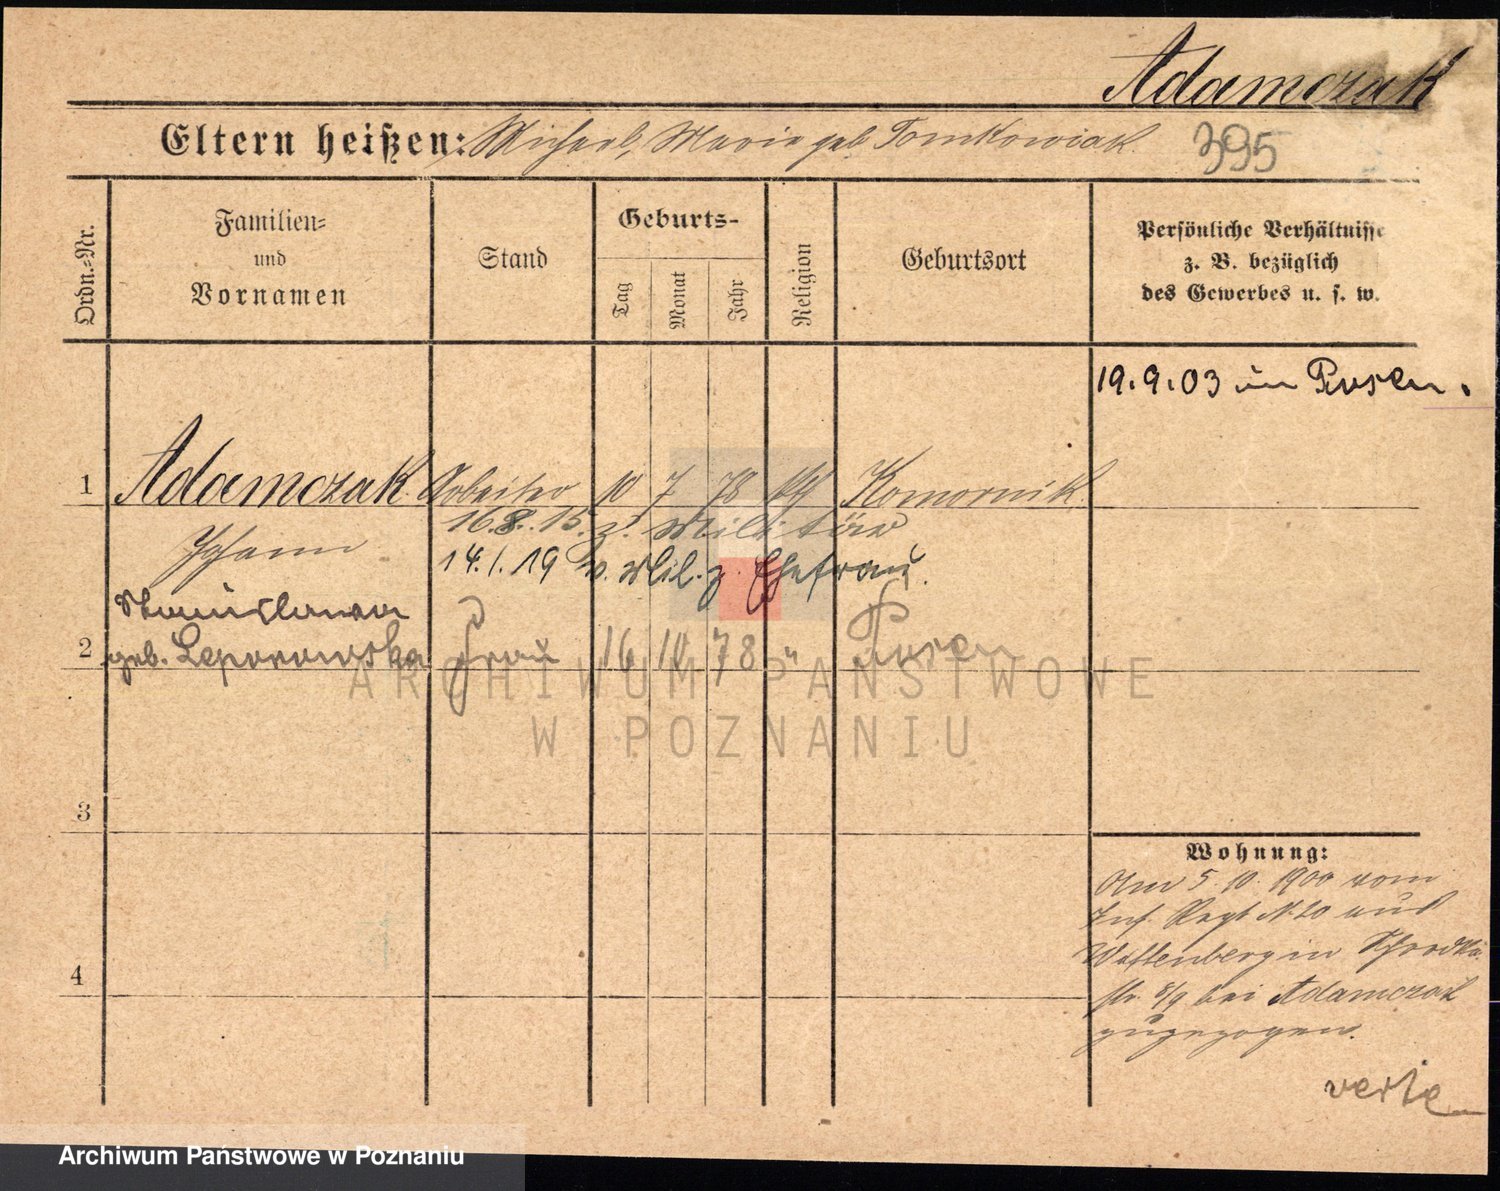 Adamczak
Eltern heißen: Michael, Marie geb Tomkowiak 395
Ordn.-Nr.
Familien-
und
Vornamen
Stand
Geburts-
Tag
Monat
Jahr
Religion
Geburtsort
Persönliche Verhältnisse
z. B. bezüglich
des Gewerbes u. s. w.
19.9.03 in Posen.
1 Adamczak Arbeiter 10 7 78 kth Komornik
16.8.15. z. Militär
Johann
14.1.19 v. Mil. z. Ehefrau.
Stanislawa
2 geb. Leporowska Frau 16 10 78 " Posen
ARCHIWUM PAŃSTWOWE
W POZNANIU
3
Wohnung:
Am 5. 10. 1900 vom
Inf. Regt N. 20 aus
Wittenberg in Schrodka
str. 8/9 bei Adamczak
zugezogen.
4
verte
Archiwum Państwowe w Poznaniu